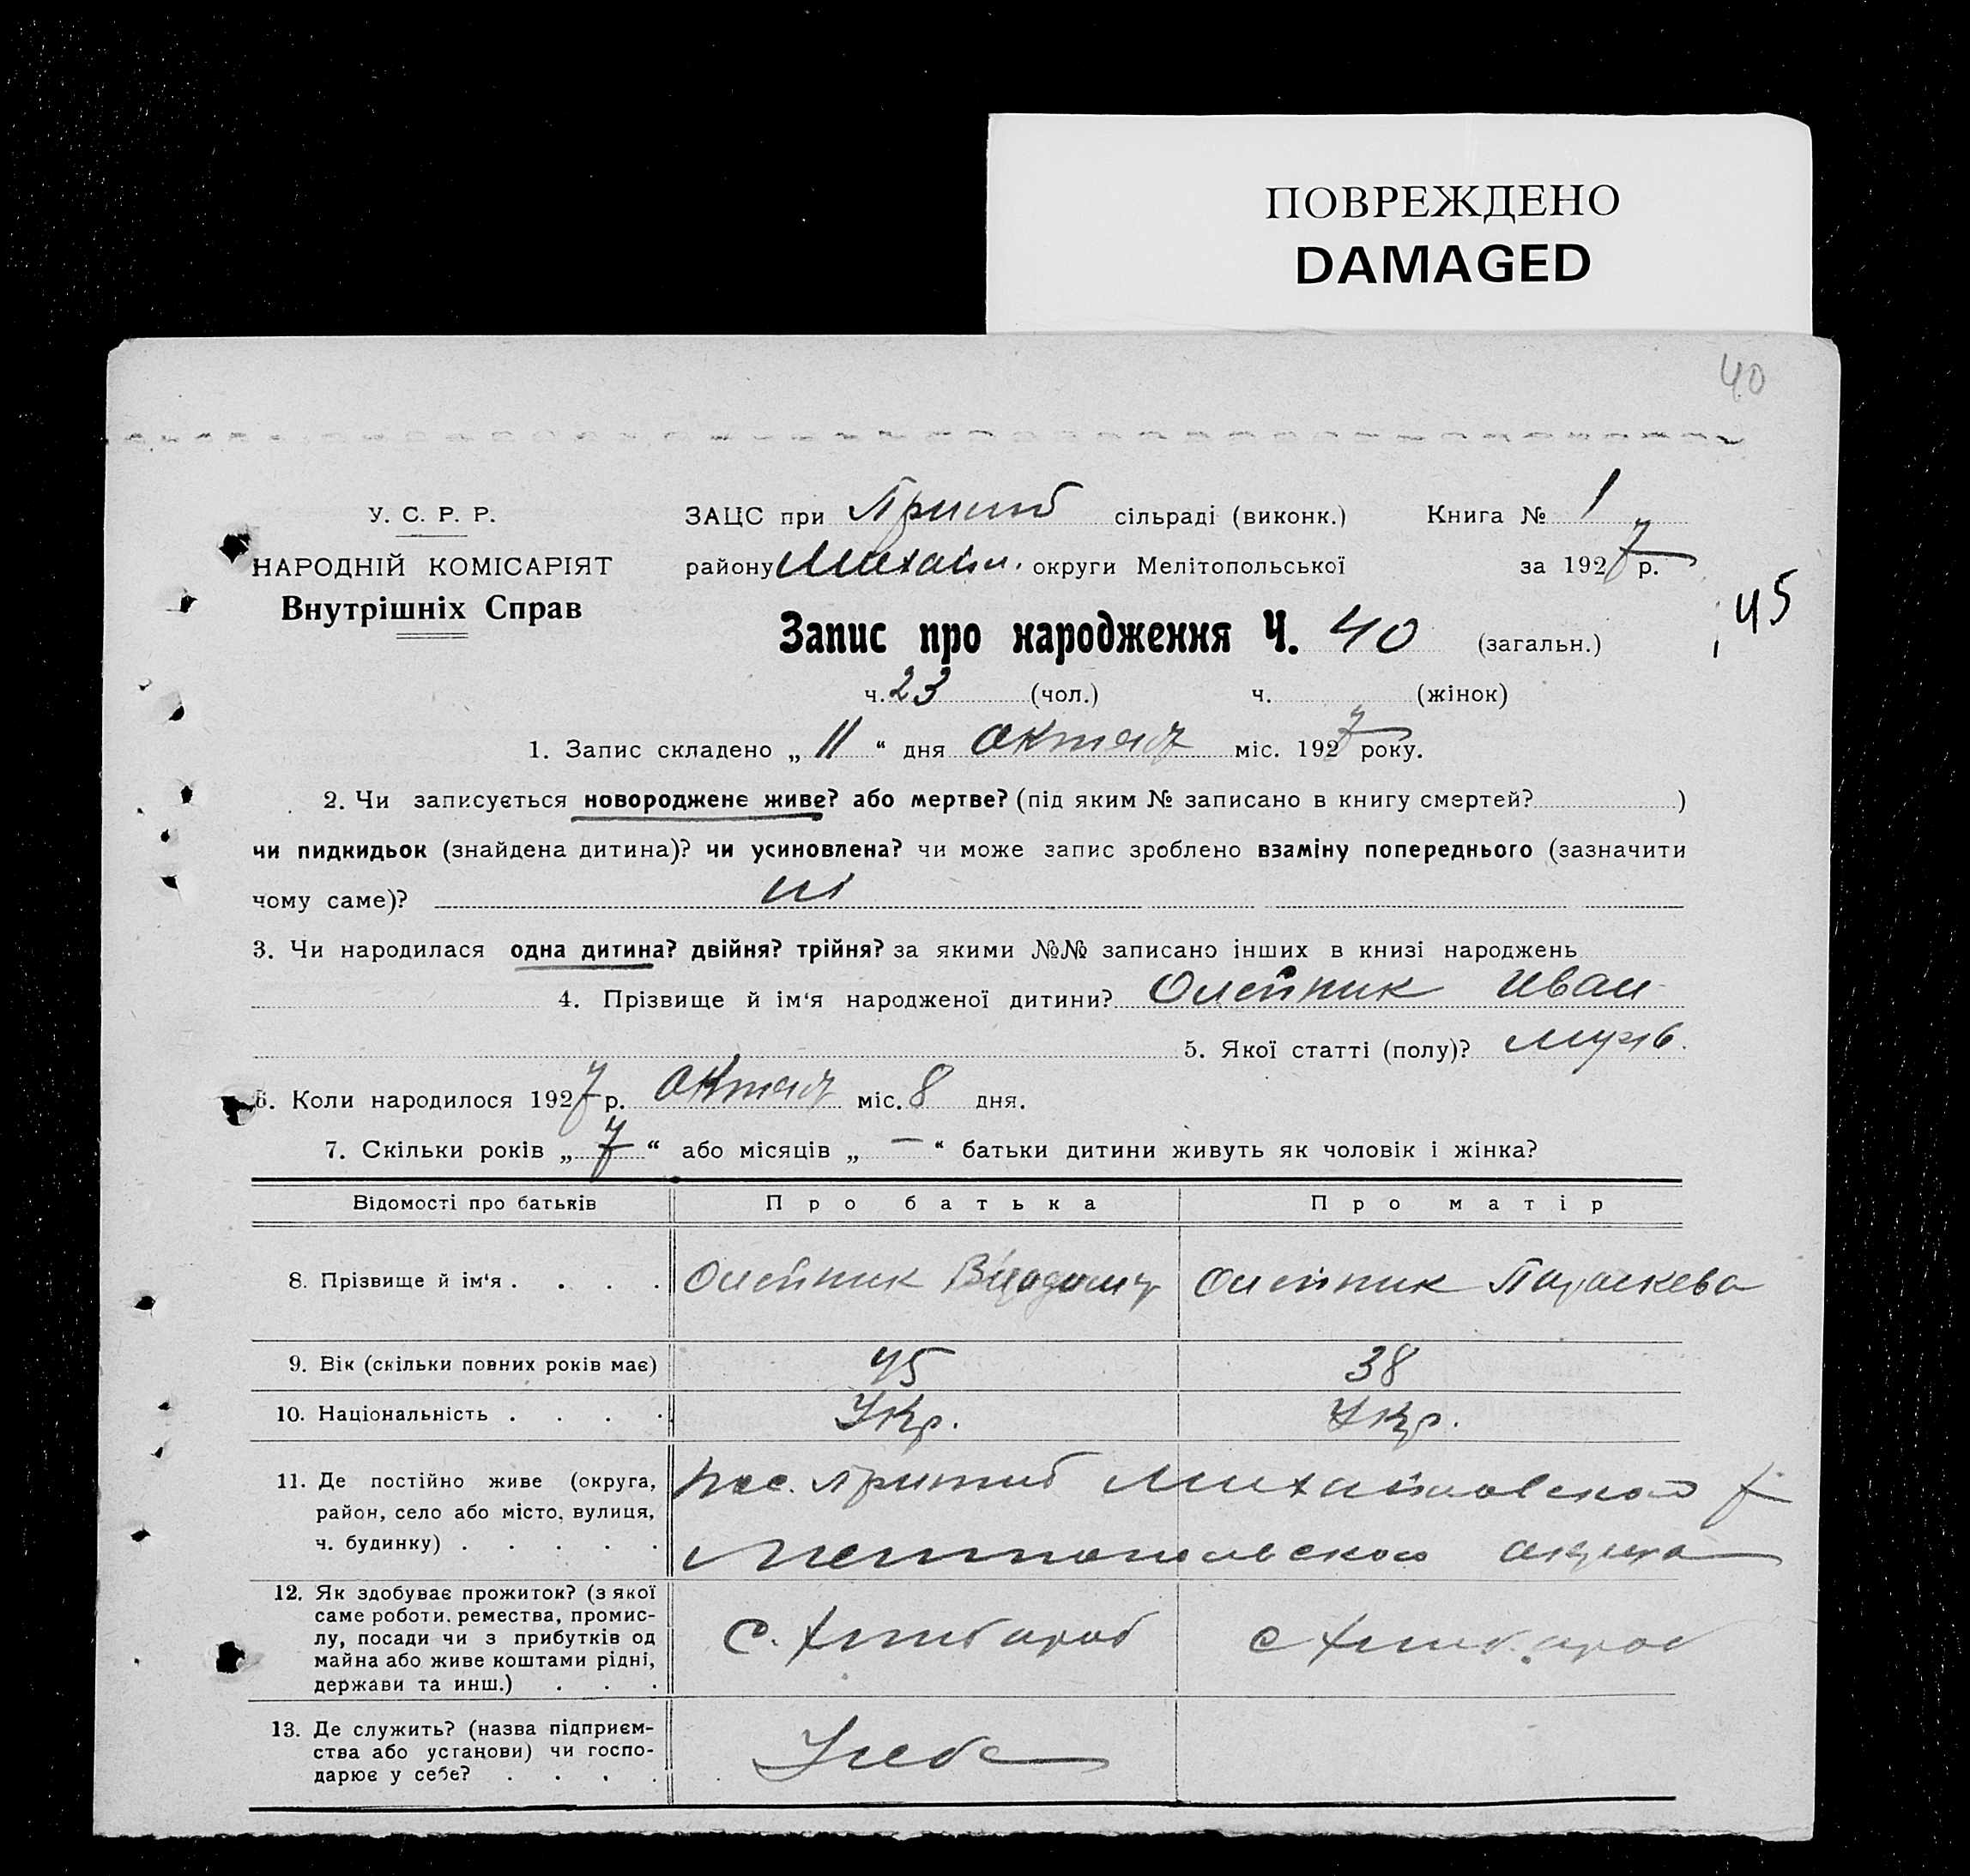 ПОВРЕЖДЕНО
DAMAGED
40
У. С. Р. Р.
НАРОДНІЙ КОМІСАРІЯТ
Внутрішніх Справ
ЗАЦС при Пришиб сільраді (виконк.) Книга № 1
району Михайл. округи Мелітопольської за 1927 р.
45
Запис про народження Ч. 40 (загальн.)
ч. 23 (чол.) ч. (жінок)
1. Запис складено „ 11 “ дня міс. 1927 року.
2. Чи записується новороджене живе? або мертве? (під яким № записано в книгу смертей? )
чи пидкидьок (знайдена дитина)? чи усиновлена? чи може запис зроблено взаміну попереднього (зазначити
чому саме)? ні
3. Чи народилася одна дитина? двійня? трійня? за якими №№ записано інших в книзі народжень
4. Прізвище й ім‘я народженої дитини? Олейник Иван
5. Якої статті (полу)?
6. Коли народилося 1927 р. міс. 8 дня.
7. Скільки років „ 7 “ або місяців „ — “ батьки дитини живуть як чоловік і жінка?
Відомості про батьків Про батька Про матір
8. Прізвище й ім‘я . . . . Олейник Олейник Параскева
9. Вік (скільки повних років має) 45 38
10. Національність . . . . Укр. Укр.
11. Де постійно живе (округа,
район, село або місто, вулиця,
ч. будинку) . . . . .
Пришиб Михайловского р
Мелитопольского округа
12. Як здобуває прожиток? (з якої
саме роботи, ремества, промис-
лу, посади чи з прибутків од
майна або живе коштами рідні,
держави та инш.) . . .
с. хлибароб с хлиб.ароб
13. Де служить? (назва підприєм-
ства або установи) чи госпо-
дарює у себе? . . . .
У себе